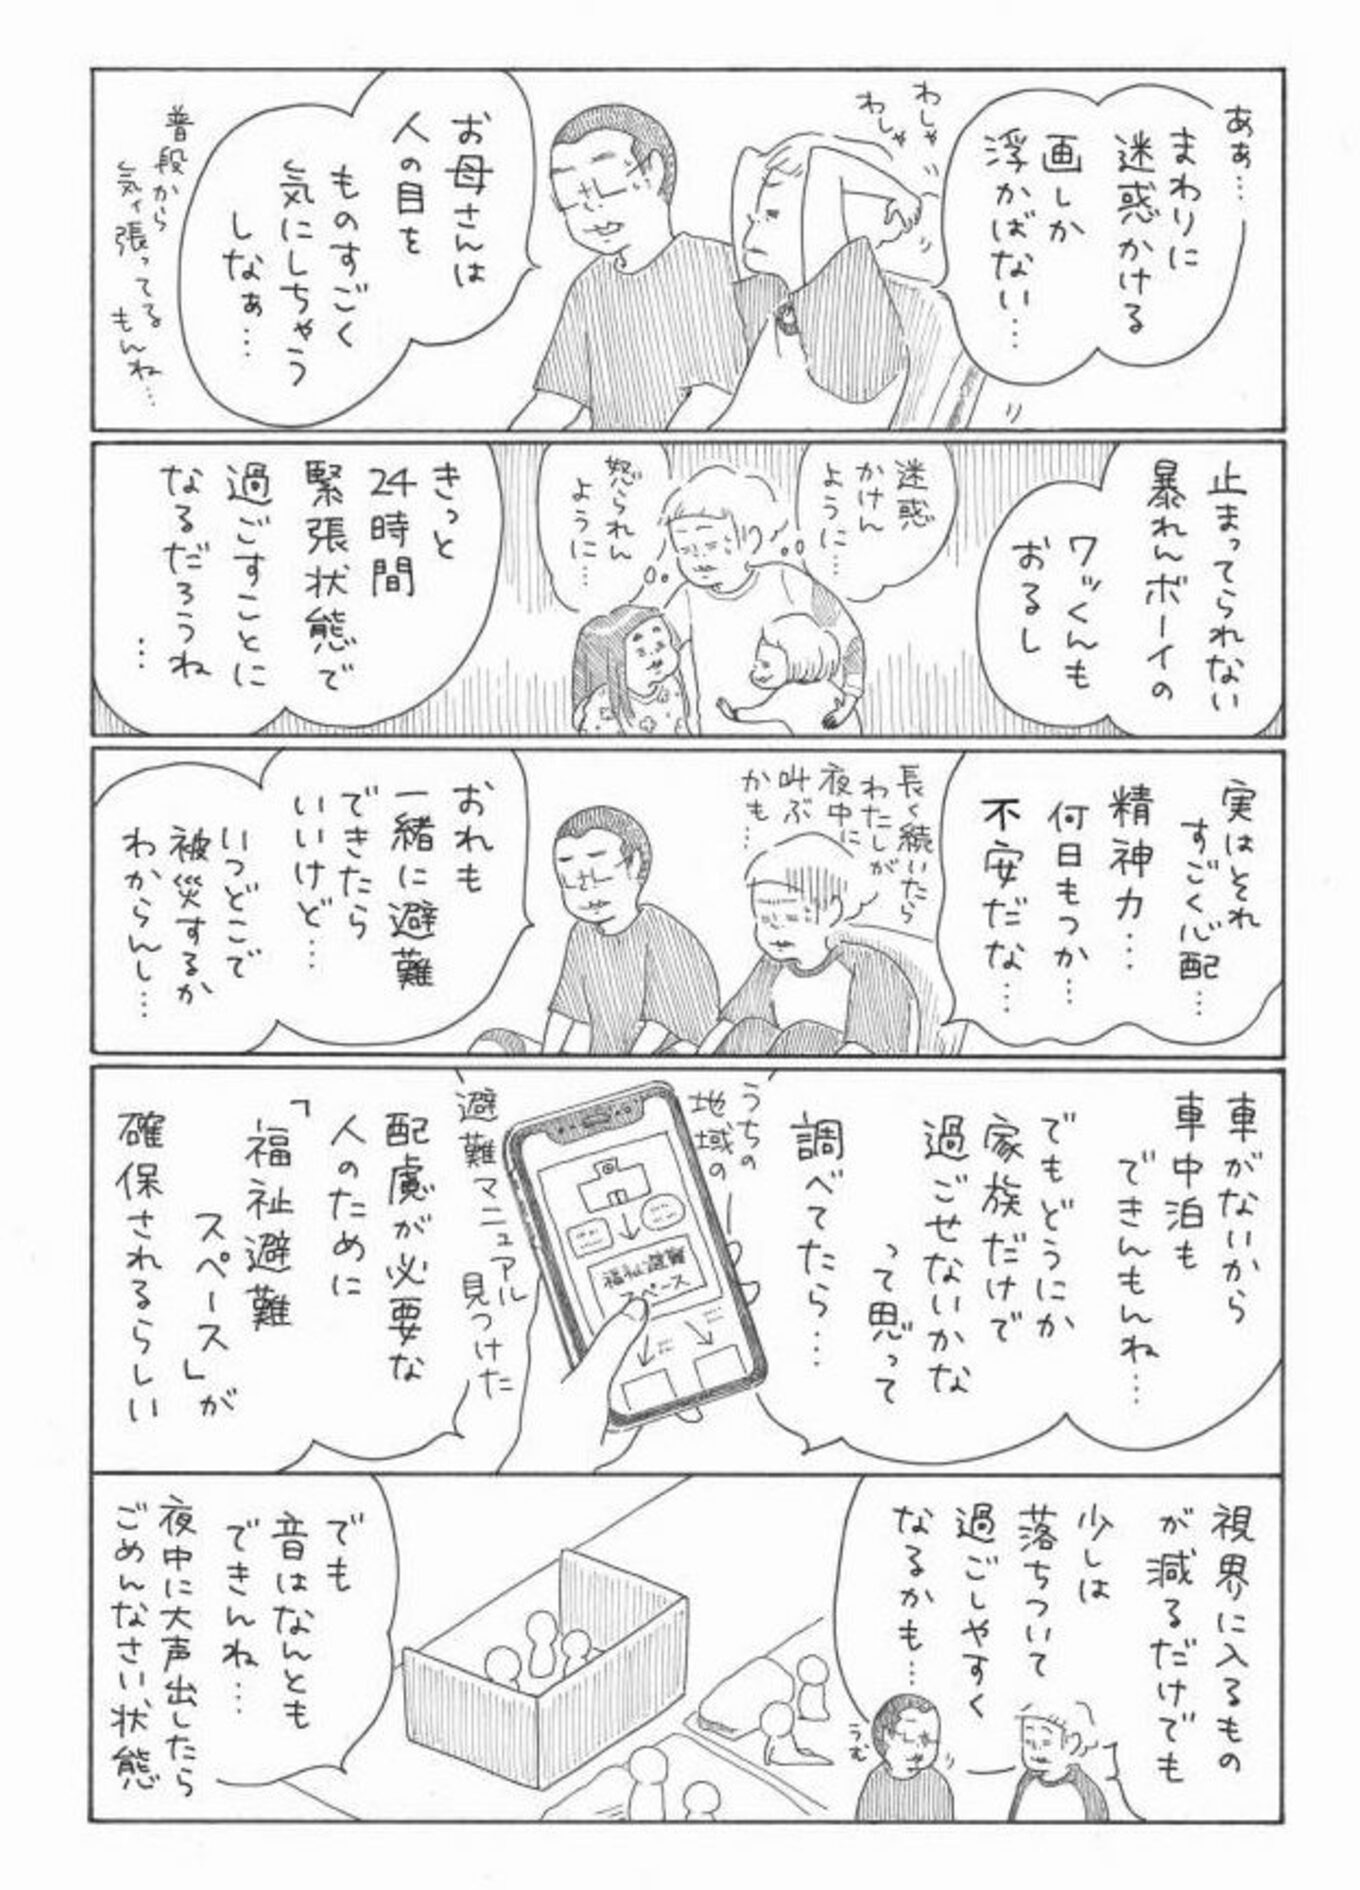 ああ…
まわりに
迷惑かける
画しか
浮かばない…
わしゃ
わしゃ
お母さんは
人の目を
ものすごく
気にしちゃう
しなぁ…
普段から
気ィ張ってる
もんね…
止まってられない
暴れんボーイの
ワッくんも
おるし
迷惑
かけん
ように…
怒られん
ように…
きっと
24時間
緊張状態で
過ごすことに
なるだろうね
…
実はそれ
すごく心配…
精神力…
何日もつか…
不安だな…
長く続いたら
わたしが
夜中に
叫ぶ
かも…
おれも
一緒に避難
できたら
いいけど…
いつどこで
被災するか
わからんし…
車がないから
車中泊も
できんもんね…
でもどうにか
家族だけで
過ごせないかな
って思って
調べてたら…
うちの
地域の
避難マニュアル
見つけた
福祉避難
スペース
配慮が必要な
人のために
「福祉避難
スペース」が
確保されるらしい
視界に入るもの
が減るだけでも
少しは
落ちついて
過ごしやすく
なるかも…
うむ
でも
音はなんとも
できんね…
夜中に大声出したら
ごめんなさい状態